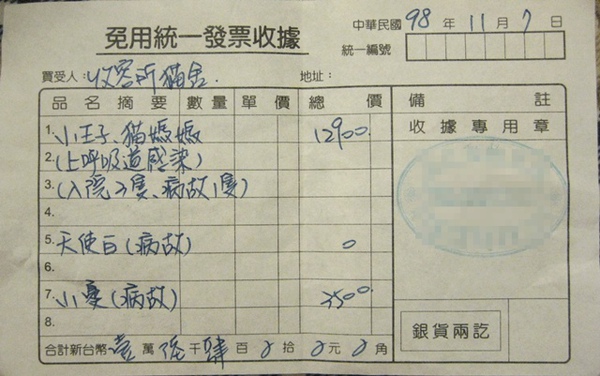 免用統一發票收據
中華民國 98 年 11 月 7 日
統一編號
買受人：收容所貓舍. 地址：
品名摘要 數量 單價 總價 備註
1. 小王子、貓媽媽 12900. 收據專用章
2. (上呼吸道感染)
3. (入院3隻、病故1隻)
4.
5. 天使白(病故) 0
6.
7. 小憂(病故) 3500.
8.
銀貨兩訖
合計新台幣 壹 萬 陸 千 肆 百 0 拾 0 元 0 角